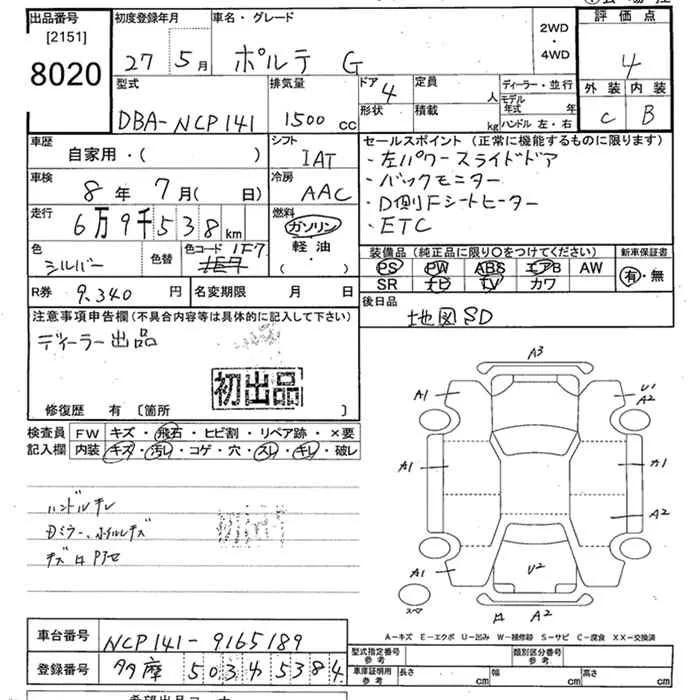 出品番号 初度登録年月 車名・グレード 2WD・4WD 評価点
[2151]
8020
27 5月 ポルテ G 4
型式 排気量 ドア 4 定員 人 ディーラー・並行 外装 内装
DBA-NCP141 1500cc 形状 積載 kg モデル年式 年 ハンドル 左・右 C B
車歴 シフト セールスポイント (正常に機能するものに限ります)
自家用・( ) IAT ・左パワースライドドア
車検 冷房 ・バックモニター
8年 7月( 日) AAC ・D側Fシートヒーター
走行 燃料 ・ETC
6万9千538km ガソリン
軽油
・( )・
色 色替 色コード 1F7
シルバー
装備品 (純正品に限り○をつけてください) 新車保証書
PS PW ABS エアB AW 有・無
SR ナビ TV カワ
R券 9,340円 名変期限 月 日 後日品
地図SD
注意事項申告欄(不具合内容等は具体的に記入して下さい)
ディーラー出品
初出品
修復歴 有 [箇所 ]
検査員 FW キズ・飛石・ヒビ割・リペア跡・×要
記入欄 内装 キズ・汚レ・コゲ・穴・スレ・キレ・破レ
ハンドルキレ
Dミラー、ホイルキズ
A3
A1 U1 A2
A1 カ1
A2
A1 U2
スペア A2
A-キズ E-エクボ U-凹み W-補修跡 S-サビ C-腐食 XX-交換済
車台番号 NCP141-9165189
登録番号 多摩 503 ち 5384
型式指定番号 参考 類別区分番号 参考
車庫証明用 参考 長さ cm 幅 cm 高さ cm